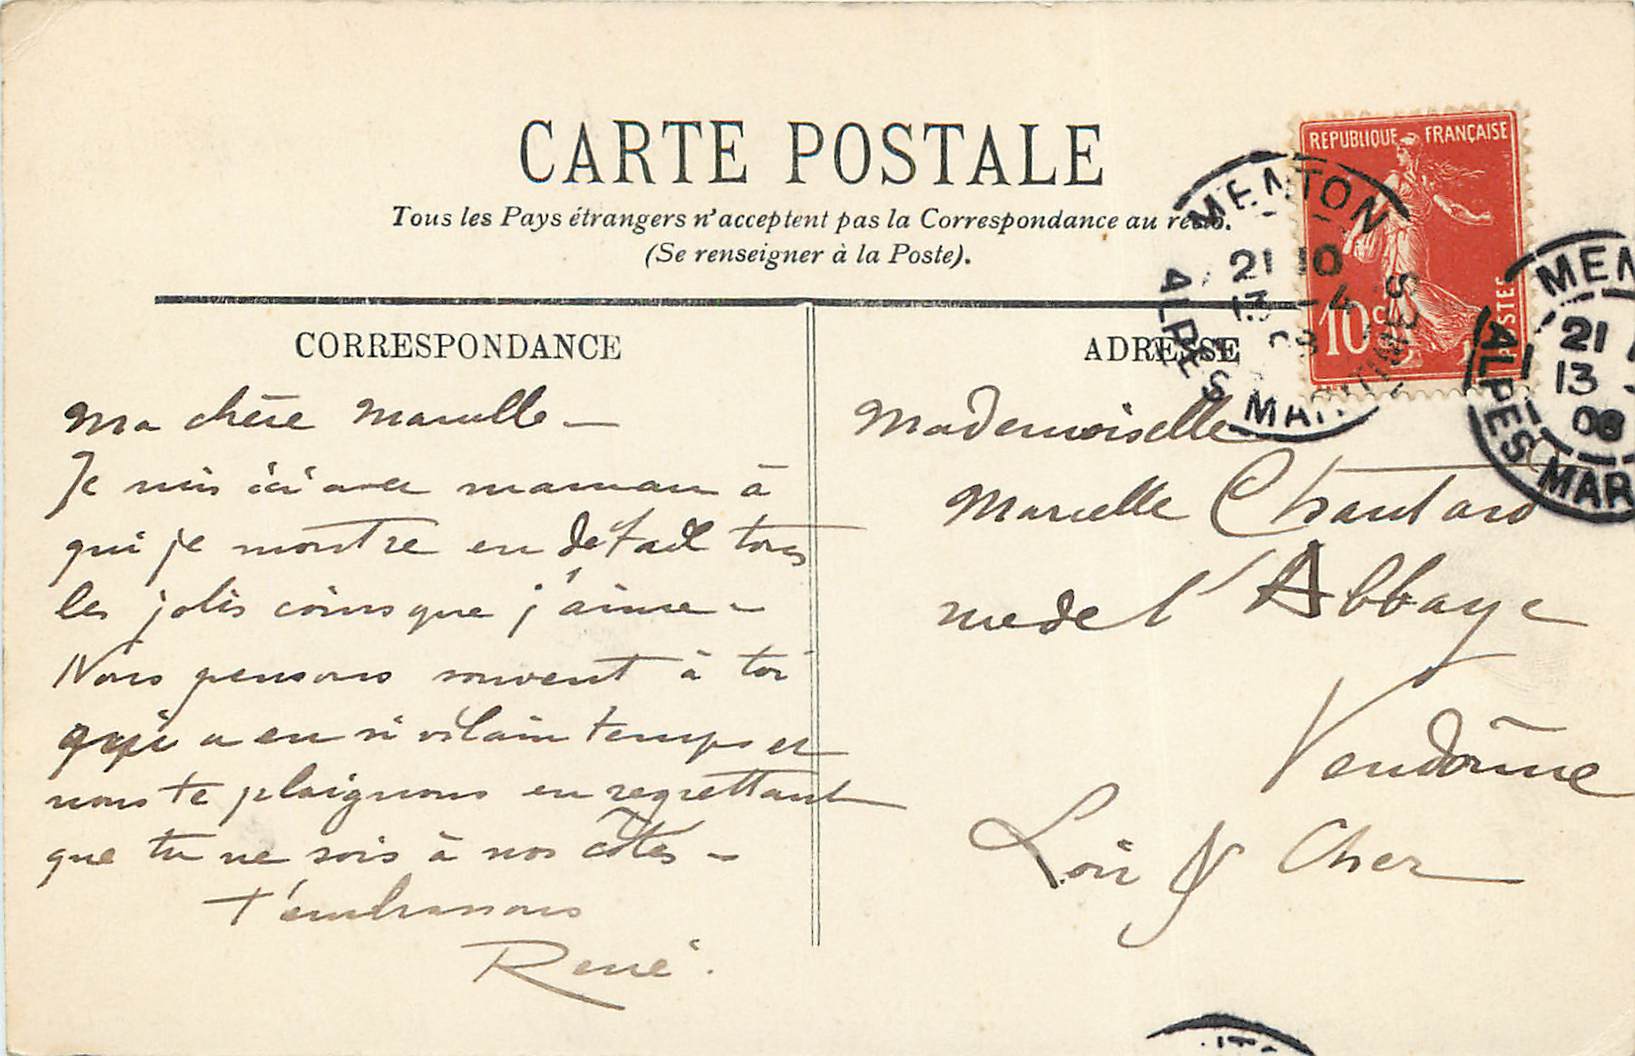 CARTE POSTALE
Tous les Pays étrangers n'acceptent pas la Correspondance au recto.
(Se renseigner à la Poste).
REPUBLIQUE FRANÇAISE
POSTES
10 c
MENTON
21 10
13 -4
08
ALPES MARITIMES
MEN
21
13
08
ALPES MAR
CORRESPONDANCE
Ma chère Marcelle —
Je suis ici avec maman à
qui je montre en détail tous
les jolis coins que j'aime —
Nous pensons souvent à toi
qui a eu si vilain temps et
nous te plaignons en regrettant
que tu ne sois à nos côtés —
t'embrassons
René.
ADRESSE
Mademoiselle
Marcelle Chautard
rue de l'Abbaye
Vendôme
Loir & Cher